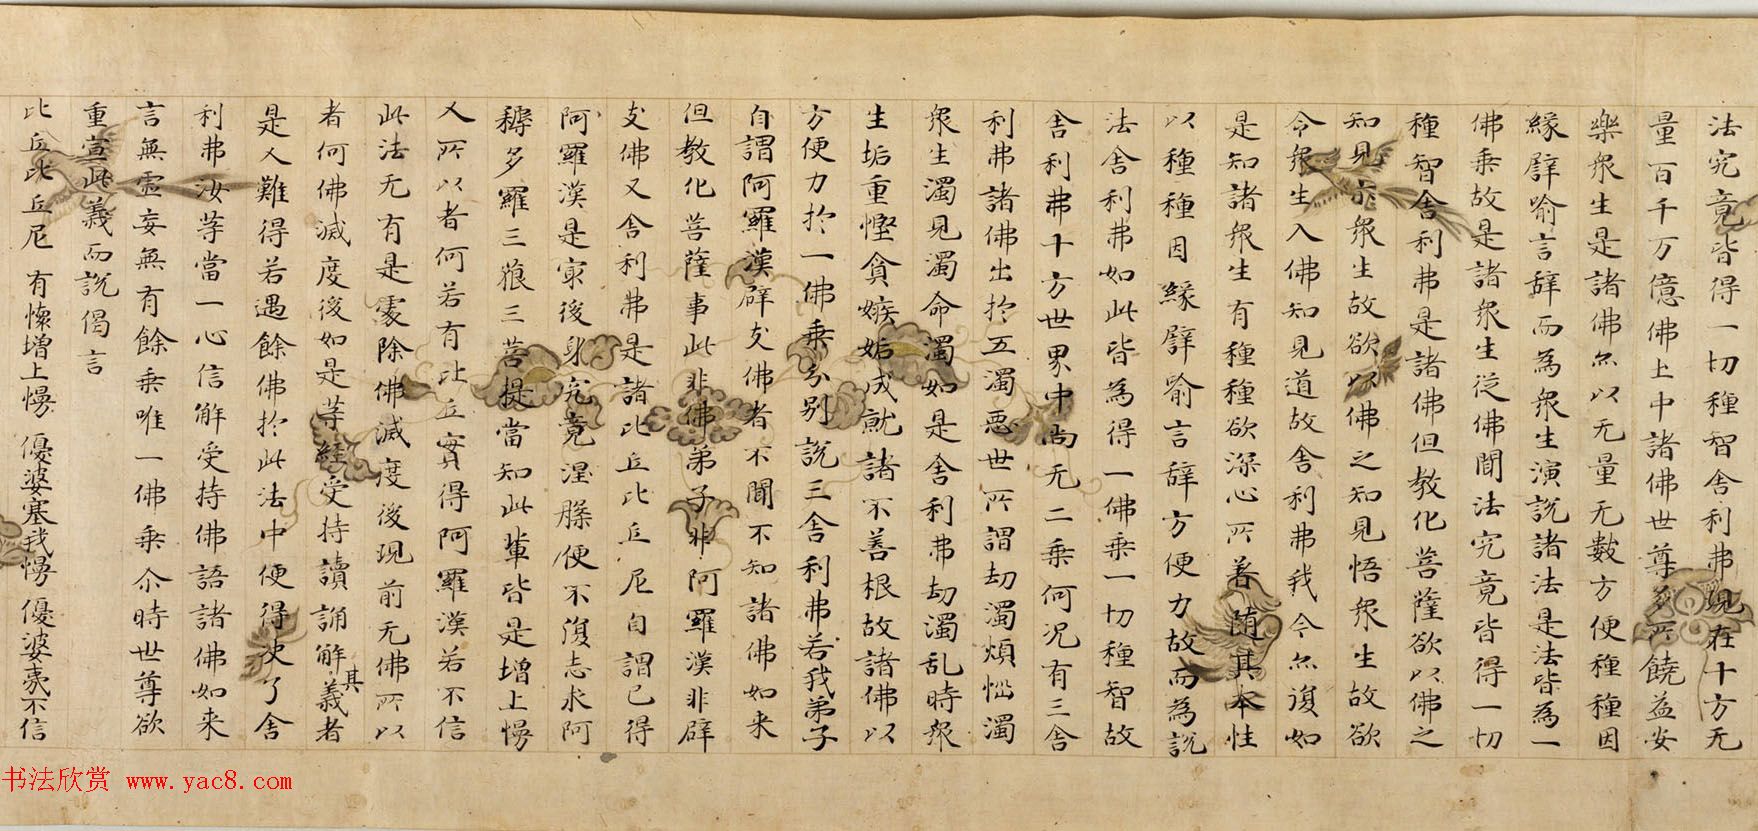 法究竟皆得一切種智舍利弗現在十方无
量百千万億佛土中諸佛世尊多所饒益安
樂衆生是諸佛亦以无量无數方便種種因
緣辟喻言辞而為衆生演説諸法是法皆為一
佛乗故是諸衆生從佛聞法究竟皆得一切
種智舍利弗是諸佛但教化菩薩欲以佛之
知見示衆生故欲以佛之知見悟衆生故欲
令衆生入佛知見道故舍利弗我今亦復如
是知諸衆生有種種欲深心所著随其本性
以種種因緣辟喻言辞方便力故而為説
法舍利弗如此皆為得一佛乗一切種智故
舍利弗十方世界中尚无二乗何況有三舍
利弗諸佛出於五濁惡世所謂劫濁煩惱濁
衆生濁見濁命濁如是舍利弗劫濁乱時衆
生垢重慳貪嫉妬成就諸不善根故諸佛以
方便力於一佛乗分别説三舍利弗若我弟子
自謂阿羅漢辟支佛者不聞不知諸佛如来
但教化菩薩事此非佛弟子非阿羅漢非辟
支佛又舍利弗是諸比丘比丘尼自謂已得
阿羅漢是寂後身究竟涅槃便不復志求阿
耨多羅三藐三菩提當知此輩皆是增上慢
人所以者何若有比丘實得阿羅漢若不信
此法无有是處除佛滅度後現前无佛所以
者何佛滅度後如是等經受持讀誦解其義者
是人難得若遇餘佛於此法中便得决了舍
利弗汝等當一心信解受持佛語諸佛如来
言無虛妄無有餘乗唯一佛乗尒時世尊欲
重宣此義而説偈言
比丘比丘尼 有懷增上慢 優婆塞我慢 優婆夷不信
书法欣赏 www.yac8.com